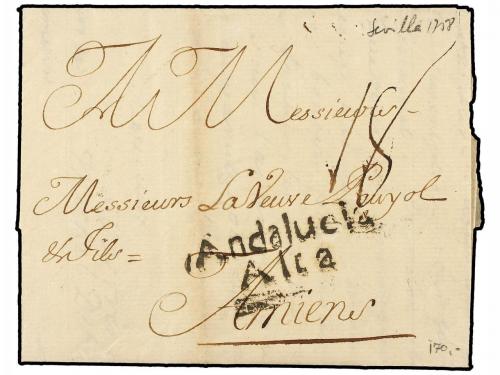 Sevilla 1758
A Messieurs
18
Messieurs La Veuve Pouyol
& Fils =
Andalucia
Alta
Amiens
170,-